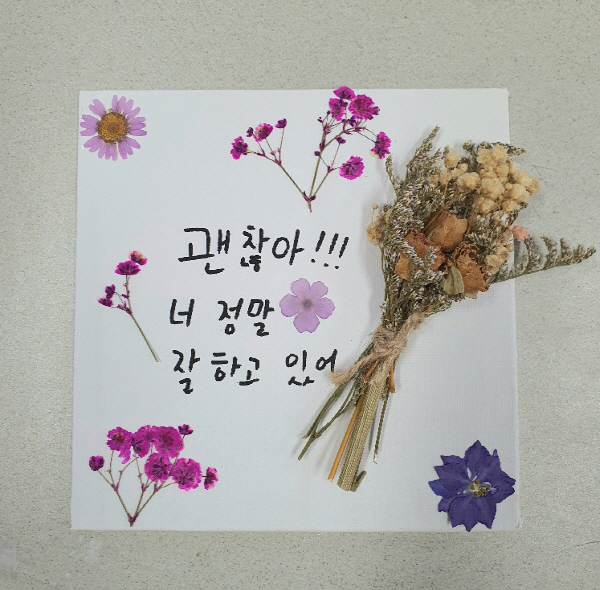 괜찮아!!!
너 정말
잘하고 있어